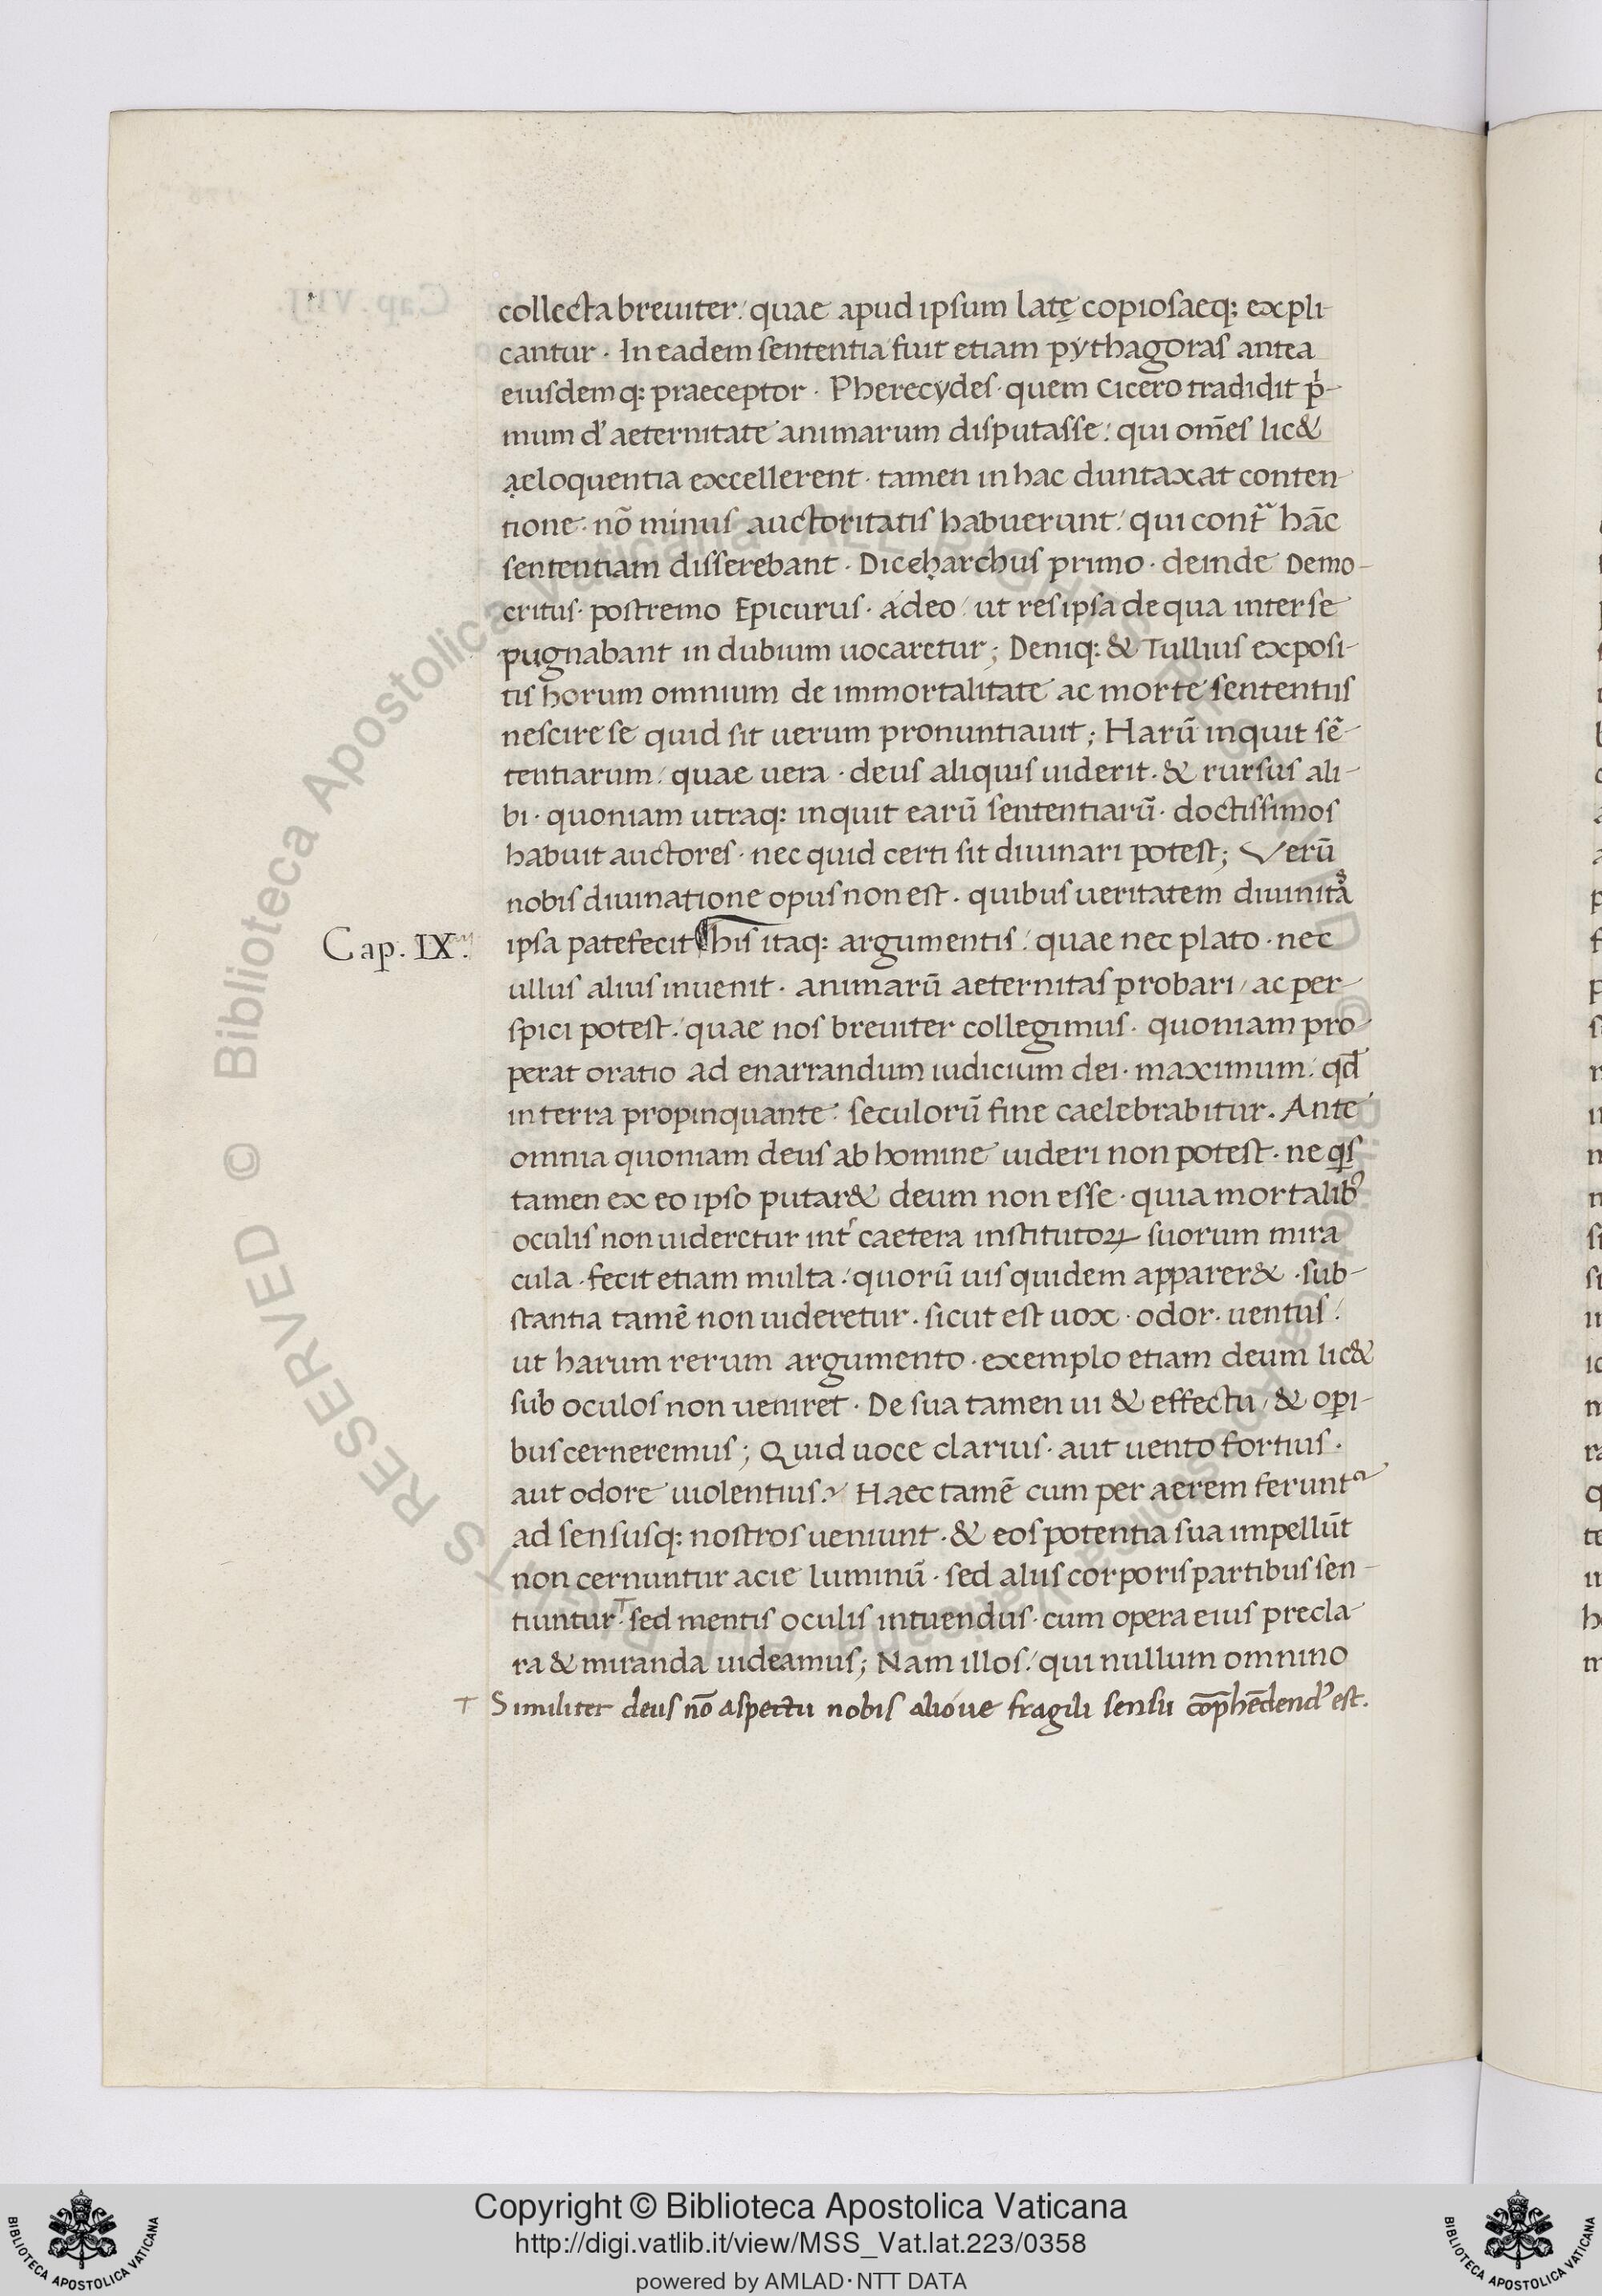 collecta breuiter: quae apud ipsum late copiosaeq: expli-
cantur · In eadem sententia fuit etiam pythagoras antea
eiusdemq: praeceptor · Pherecydes · quem Cicero tradidit p̍-
mum d' aeternitate animarum disputasse: qui om̄es lic&
aeloquentia excellerent · tamen in hac duntaxat conten-
tione · nō minus auctoritatis habuerunt: qui cont̃ hāc
sententiam disserebant · Diceharchus primo · deinde Demo-
critus · postremo Epicurus · adeo / ut res ipsa de qua inter se
pugnabant in dubium uocaretur; Deniq: & Tullius exposi-
tis horum omnium de immortalitate ac morte sententiis
nescire se quid sit uerum pronuntiauit; Harū inquit sē-
tentiarum / quae uera · deus aliquis uiderit · & rursus ali-
bi · quoniam utraq: inquit earū sententiarū · doctissimos
habuit auctores · nec quid certi sit diuinari potest; Verū
nobis diuinatione opus non est · quibus ueritatem diuinitas
Cap. IX.
ipsa patefecit his itaq: argumentis: quae nec plato · nec
ullus alius inuenit · animarū aeternitas probari / ac per-
spici potest: quae nos breuiter collegimus · quoniam pro-
perat oratio ad enarrandum iudicium dei · maximum: qd̄
in terra propinquante: seculorū fine caelebrabitur. Ante
omnia quoniam deus ab homine uideri non potest · ne qs
tamen ex eo ipso putar& deum non esse · quia mortalib'
oculis non uideretur int̍ caetera institutoꝝ suorum mira
cula · fecit etiam multa: quorū uis quidem apparer& · sub-
stantia tamē non uideretur · sicut est uox · odor · uentus:
ut harum rerum argumento · exemplo etiam deum lic&
sub oculos non ueniret · De sua tamen ui & effectu / & oꝑi-
bus cerneremus; Quid uoce clarius · aut uento fortius ·
aut odore uiolentius? Haec tamē cum per aerem ferunt᷑
ad sensusq: nostros ueniunt · & eos potentia sua impellūt
non cernuntur acie luminū · sed aliis corporis partibus sen-
tiuntur · T sed mentis oculis intuendus · cum opera eius precla-
ra & miranda uideamus; Nam illos: qui nullum omnino
T Similiter deus nō aspectu nobis alióue fragili sensu cōp̄hēdend' est.
Copyright © Biblioteca Apostolica Vaticana
http://digi.vatlib.it/view/MSS_Vat.lat.223/0358
powered by AMLAD·NTT DATA